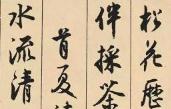 松花歷
伴採茶
首夏
水流清